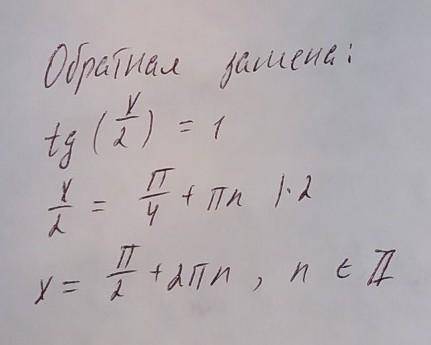 Обратная замена:
tg (x/2) = 1
x/2 = π/4 + πn |·2
x = π/2 + 2πn , n ∈ ℤ